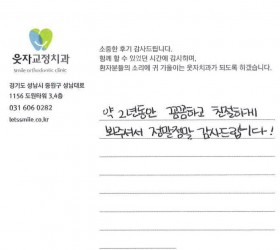 웃자교정치과
smile orthodontic clinic
경기도 성남시 중원구 성남대로
1156 도원타워 3,4층
031 606 0282
letssmile.co.kr
소중한 후기 감사드립니다.
함께 할 수 있었던 시간에 감사하며,
환자분들의 소리에 귀 기울이는 웃자치과가 되도록 하겠습니다.
약 2년동안 꼼꼼하고 친절하게
봐주셔서 정말정말 감사드립니다!